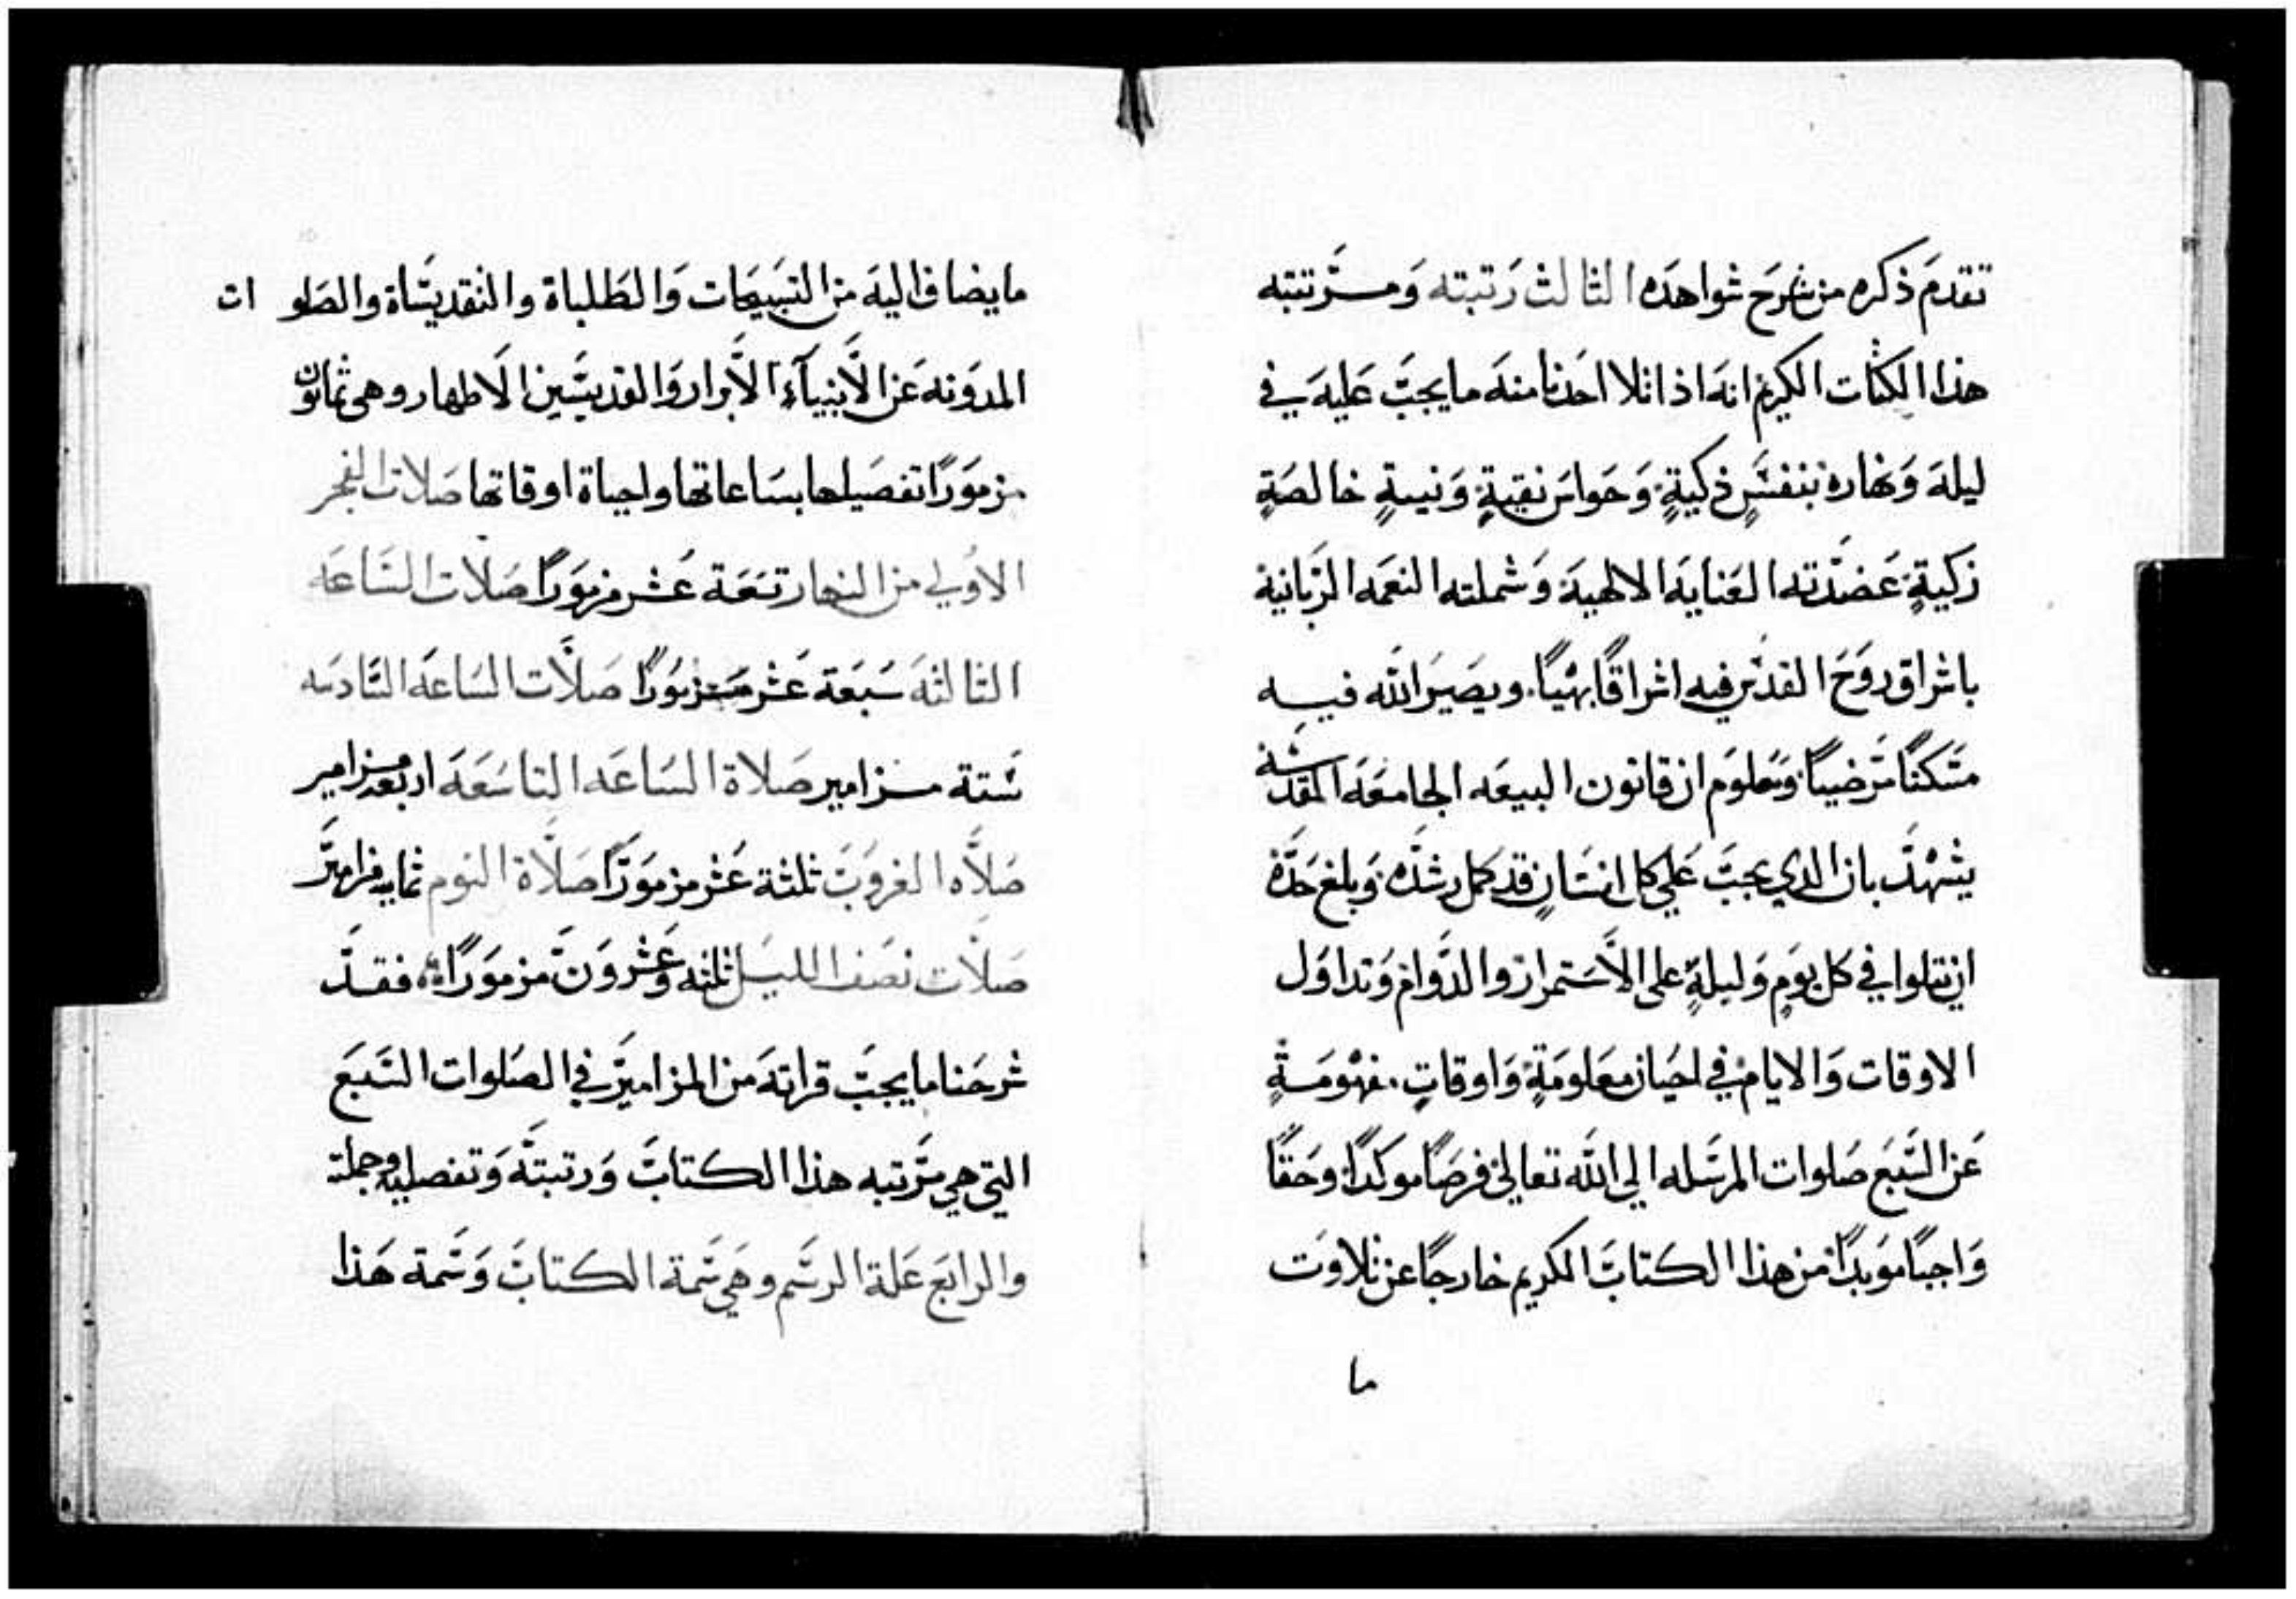 تقدم ذكره من شرح شواهده الثالث رتبته ومرتبته
هذا الكتاب الكريم انه اذا تلا احدنا منه ما يجب عليه في
ليله ونهاره بنفسٍ زكيةٍ وحواس نقيةٍ ونيةٍ خالصةٍ
زكيةٍ عضدته العنايه الالهية وشملته النعمه الربانية
باشراق روح القدس فيه اشراقًا بهيًا ويصير الله فيه
مسكنًا مرضيًا ومعلوم ان قانون البيعه الجامعه المقدسه
يشهد بان الدي يجب علي كل انسانٍ قد كمل رشده وبلغ حده
ان يتلوا في كل يومٍ وليلةٍ على الاستمرار والدوام وتداول
الاوقات والايام في احيان معلومةٍ واوقاتٍ مفهومةٍ
عن السبع صلوات المرسله الي الله تعالي فرضًا موكدًا وحقًا
واجبًا موبدًا من هذا الكتاب الكريم خارجًا عن تلاوت
ما
ما يضاف اليه من التسبيحات والطلباة والتقديساة والصلوات
المدونه عن الأنبيآء الأبرار والقديسين الاطهار وهى ثمانون
مزمورًا تفصيلها بساعاتها واحياة اوقاتها صلات الفجر
الاولي من النهار تسعة عشر مزمورًا صلات الساعه
الثالثه سبعة عشر مزمورًا صلات الساعه السادسه
ستة مزامير صلاة الساعه التاسعه اربعه مزامير
صلاه الغروب ثلثة عشر مزمورًا صلاة النوم ثمانيه مزامير
صلات نصف الليل ثلثه وعشرون مزمورًا فقد
شرحنا ما يجب قراته من المزامير في الصلوات السبع
التي هي مرتبه هذا الكتاب ورتبته وتفصيله وجملته
والرابع علة الرسم وهي سمة الكتاب وسمة هذا